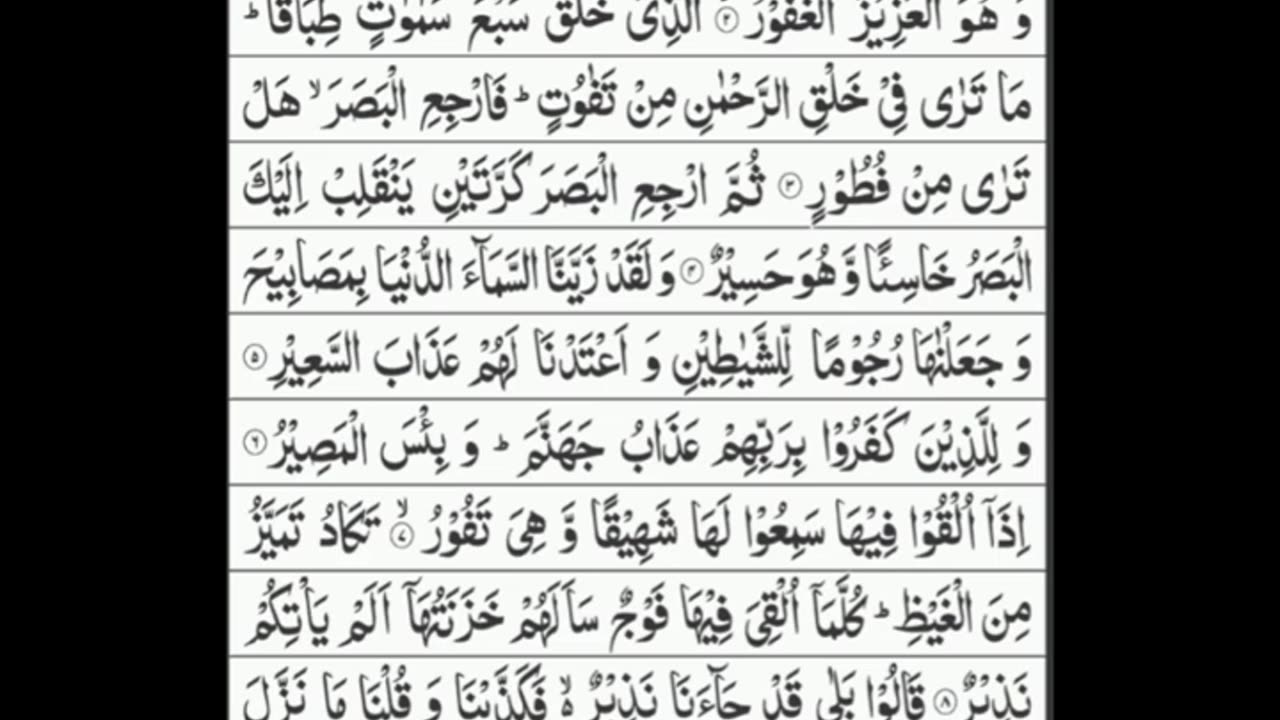 وَ هُوَ الْعَزِيْزُ الْغَفُوْرُ ۝۲ الَّذِىْ خَلَقَ سَبْعَ سَمٰوٰتٍ طِبَاقًا ؕ
مَا تَرٰى فِىْ خَلْقِ الرَّحْمٰنِ مِنْ تَفٰوُتٍ ؕ فَارْجِعِ الْبَصَرَ ۙ هَلْ
تَرٰى مِنْ فُطُوْرٍ ۝۳ ثُمَّ ارْجِعِ الْبَصَرَ كَرَّتَيْنِ يَنْقَلِبْ اِلَيْكَ
الْبَصَرُ خَاسِئًا وَّ هُوَ حَسِيْرٌ ۝۴ وَ لَقَدْ زَيَّنَّا السَّمَآءَ الدُّنْيَا بِمَصَابِيْحَ
وَ جَعَلْنٰهَا رُجُوْمًا لِّلشَّيٰطِيْنِ وَ اَعْتَدْنَا لَهُمْ عَذَابَ السَّعِيْرِ ۝۵
وَ لِلَّذِيْنَ كَفَرُوْا بِرَبِّهِمْ عَذَابُ جَهَنَّمَ ؕ وَ بِئْسَ الْمَصِيْرُ ۝۶
اِذَاۤ اُلْقُوْا فِيْهَا سَمِعُوْا لَهَا شَهِيْقًا وَّ هِىَ تَفُوْرُ ۙ۝۷ تَكَادُ تَمَيَّزُ
مِنَ الْغَيْظِ ؕ كُلَّمَاۤ اُلْقِىَ فِيْهَا فَوْجٌ سَاَلَهُمْ خَزَنَتُهَاۤ اَلَمْ يَاْتِكُمْ
نَذِيْرٌ ۝۸ قَالُوْا بَلٰى قَدْ جَآءَنَا نَذِيْرٌ ۬ۙ فَكَذَّبْنَا وَ قُلْنَا مَا نَزَّلَ